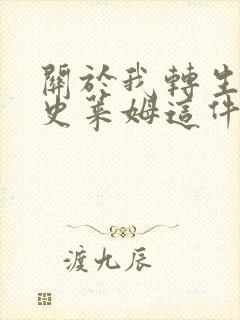 關於我轉生
史萊姆這件
渡九辰